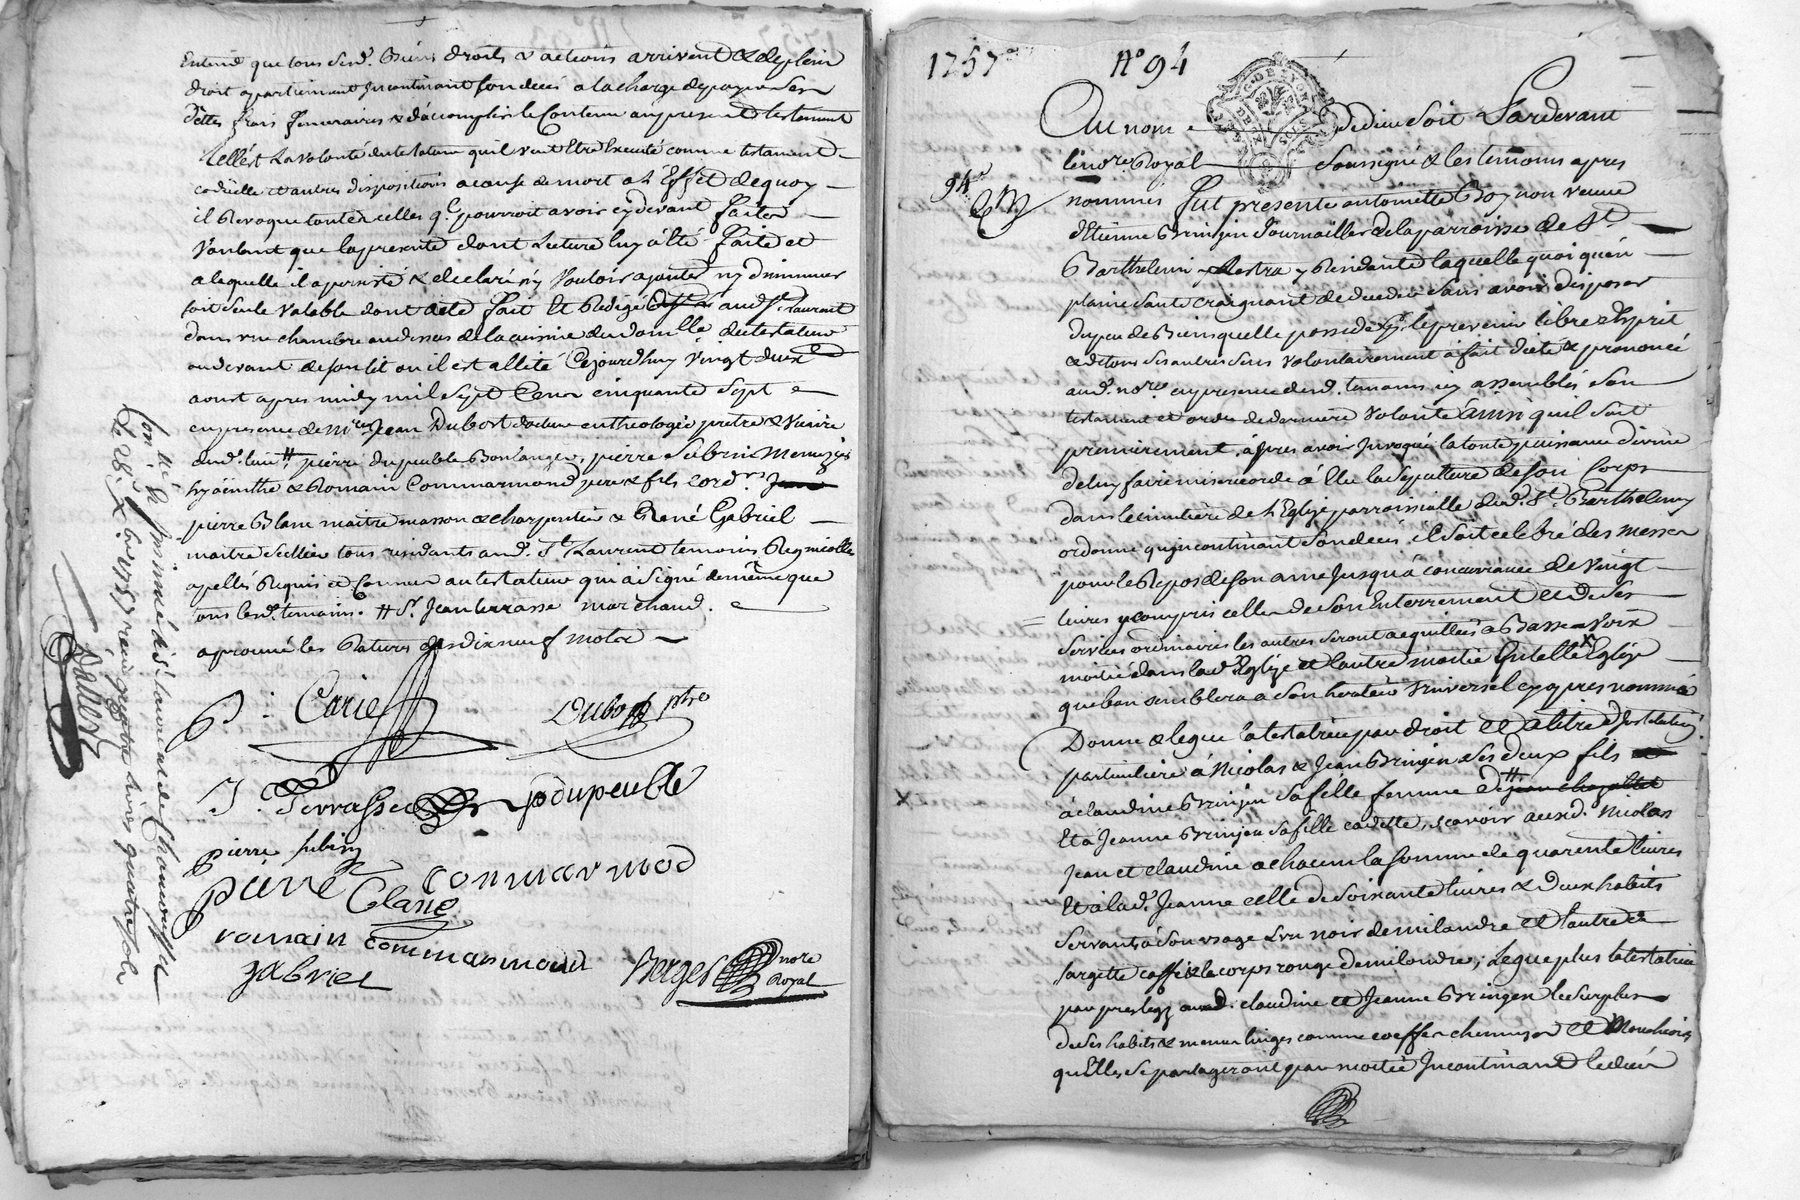 Entend que tous sesd. Biens droits & actions arrivent & de plein
droit apartiennent Incontinant son deces a la charge de payer ses
dettes frais funeraires & d'accomplir le Contenu au present testament
telle est la volonté du testateur qu'il veut Etre Executé comme testament
codicille et autres dispositions a cause de mort a l'Effet de quoy
il Revoque toutes celles qe. pourroit avoir cy devant faites
Voulant que la presente dont Lecture luy à été faite et
a laquelle il a persisté & declaré n'y Vouloir ajouter ny diminuer
soit seule Valable dont acte fait Et Redigé aud. St. Laurent
dans une chambre au dessus de la cuisine du domicille du testateur
au devant de son lit ou il est allité Cejourdhuy Vingt deux
aoust apres midy mil sept Cens cinquante sept
en presence de Mre Jean Dubost docteur en theologie pretre & Vicaire
aud. lieu # pierre dupeuble Boulanger, pierre Subrin Menuzier
hyacinthe & Romain Commarmond pere & fils cordrs
pierre Blanc maitre masson & charpentier & René Gabriel
maitre Sellier tous residants aud. St Laurent temoins Regnicolle
apellés Requis et Connus au testateur qui à signé de même que
tous lesd. temoins. # Sr. Jean terrasse marchand.
aprouvé les Ratures de dixneuf motes
P. Carief Dubost ptre
J. Terrasse p dupeuble
pierre subrin
pierre Blanc commarmod
romain commarmond
gabriel Berger nore Royal
Conllé & Insinué à St Saurin de Chamousset
Le 28. xbre 1757 reçu quatre livres quatre sols
Dalbost
1757 N° 94
Au nom de dieu Soit Pardevant
le nore. Royal Soussigné & les temoins apres
94e
nommés fut presente antoinette Boynon veuve
d'Etienne Brinjon Journaillier de la parroisse de St
Barthelemi y Residante laquelle quoi qu'en
pleine santé craignant de deceder sans avoir disposer
du peu de Biens quelle possede & pr. le prevenir libre d'Esprit
& de tous ses autres sens Volontairement à fait dicté & prononcé
aud. nore. en presence desd. temoins icy assemblés son
testament et ordre de derniere Volonté ainsi qu'il suit
premierement, apres avoir Invoqué la toute puissance divine
de luy faire misericorde à Elu la sepulture de son Corps
dans le cimitière de l'Eglize parroissialle dud. St. Barthelemy
ordonne qu'incontinant son deces il soit celebré des messes
pour le Repos de son ame Jusqu'a concurrance de Vingt
livres y compris celles de son Enterrement et de ses
services ordinaires les autres seront acquittées a Basse Voix
moitié dans lad. Eglize et l'autre moitié En telle Eglize
que bon semblera a son heritier Universel cy apres nommé
Donne & legue la testatrice par droit et a titre d'Institution
particuliere à Nicolas & Jean Brinjon ses deux fils
à claudine Brinjon sa fille femme de # jean chazottet
Et a Jeanne Brinjon sa fille cadette, scavoir auxd. Nicolas
Jean et claudine a chacun la somme de quarente livres
Et à lad. Jeanne celle de soixante livres & deux habits
servants à son usage l'un noir de milandre et l'autre de
sargette caffé & le corps rouge de milandre; Legue plus la testatrice
par preslegz auxd. claudine et Jeanne Bringon le surplus
de ses habits & menus linges comme coeffes chemises et Mouchoirs
qu'Elles se partageront par moitié Incontinant le deces